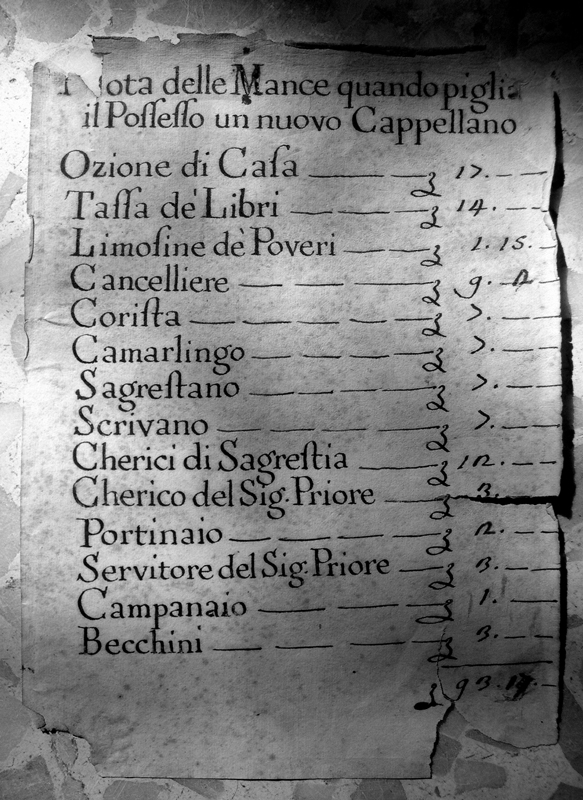 Nota delle Mance quando piglia
il Poſſeſſo un nuovo Cappellano
Ozione di Caſa 17.
Taſſa de' Libri 14.
Limoſine de' Poveri 1.15.
Cancelliere 9.
Coriſta 7.
Camarlingo 7.
Sagreſtano 7.
Scrivano 7.
Cherici di Sagreſtia 12.
Cherico del Sig: Priore 3.
Portinaio 2.
Servitore del Sig: Priore 3.
Campanaio 1.
Becchini 3.
93.